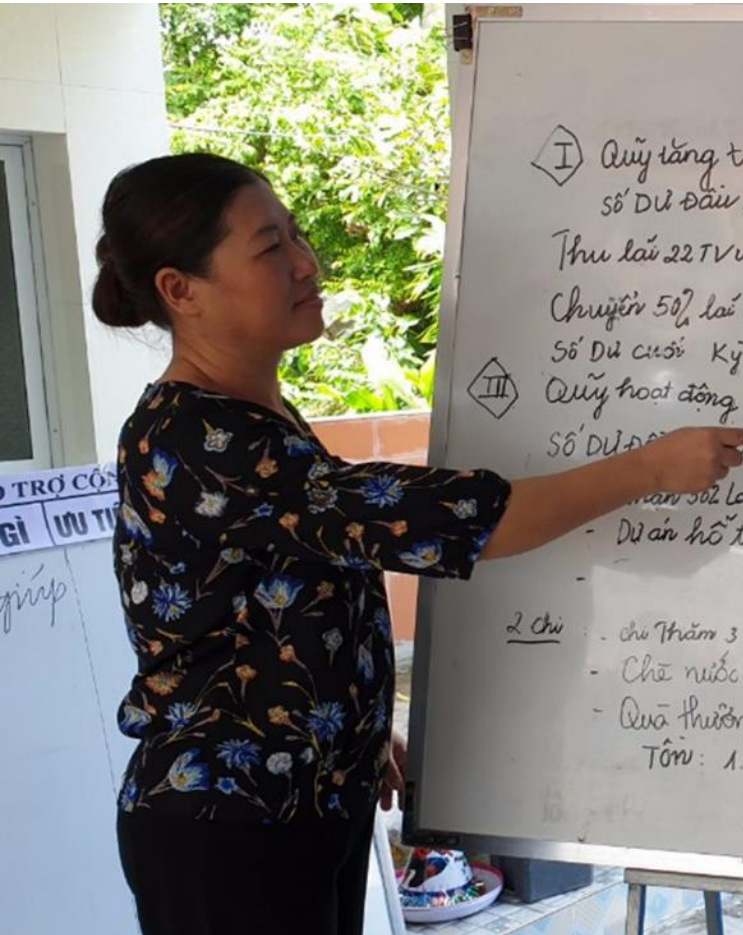 I Quỹ tăng t
Số Dư Đầu
Thu lãi 22 TV v
Chuyển 50% lãi
Số Dư cuối Kỳ
III Quỹ hoạt động
Số Dư Đầ
nhận 50% Lã
- Dự án hỗ t
-
2 chi : - chi Thăm 3
- Chè nước
- Quà thưởn
Tồn : 1.
TRỢ CỘN
GÌ ƯU TI
giúp